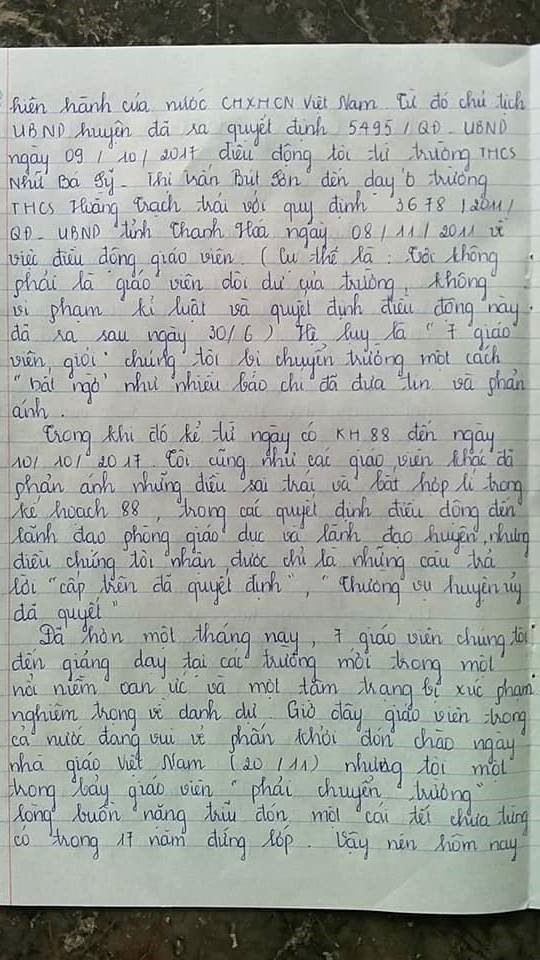 hiện hành của nước CHXHCN Việt Nam. Từ đó chủ tịch
UBND huyện đã ra quyết định 5495/QĐ-UBND
ngày 09/10/2017 điều động tôi từ trường THCS
Nhữ Bá Sỹ - Thị trấn Bút Sơn đến dạy ở trường
THCS Hoằng Trạch trái với quy định 3678/2011/
QĐ-UBND tỉnh Thanh Hoá ngày 08/11/2011 về
việc điều động giáo viên. (Cụ thể là: Tôi không
phải là giáo viên dôi dư của trường, không
vi phạm kỉ luật và quyết định điều động này
đã ra sau ngày 30/6) Hệ luỵ là "7 giáo
viên giỏi" chúng tôi bị chuyển trường một cách
"bất ngờ" như nhiều báo chí đã đưa tin và phản
ánh.
Trong khi đó kể từ ngày có KH 88 đến ngày
10/10/2017. Tôi cũng như các giáo viên khác đã
phản ánh những điều sai trái và bất hợp lí trong
kế hoạch 88, trong các quyết định điều động đến
lãnh đạo phòng giáo dục và lãnh đạo huyện, nhưng
điều chúng tôi nhận được chỉ là những câu trả
lời "cấp trên đã quyết định", "Thường vụ huyện uỷ
đã quyết"
Đã hơn một tháng nay, 7 giáo viên chúng tôi
đến giảng dạy tại các trường mới trong một
nỗi niềm oan ức và một tâm trạng bị xúc phạm
nghiêm trọng về danh dự. Giờ đây giáo viên trong
cả nước đang vui vẻ phấn khởi đón chào ngày
nhà giáo Việt Nam (20/11) nhưng tôi một
trong bảy giáo viên "phải chuyển trường"
lòng buồn nặng trĩu đón một cái tết chưa từng
có trong 17 năm đứng lớp. Vậy nên hôm nay